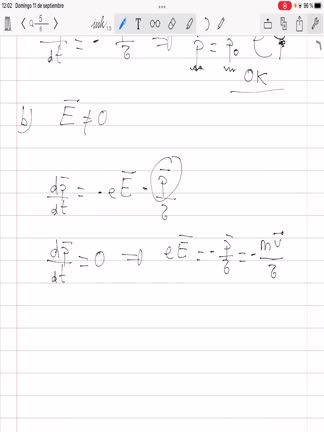 12:02 Domingo 11 de septiembre 96 %
5/6
dt = - τ ⇒ p = p₀ e
OK
b) E⃗ ≠ 0
dp⃗/dt = - e E⃗ - p⃗/τ
dp⃗/dt = 0 ⇒ e E⃗ = - p⃗/τ = - m v⃗/τ